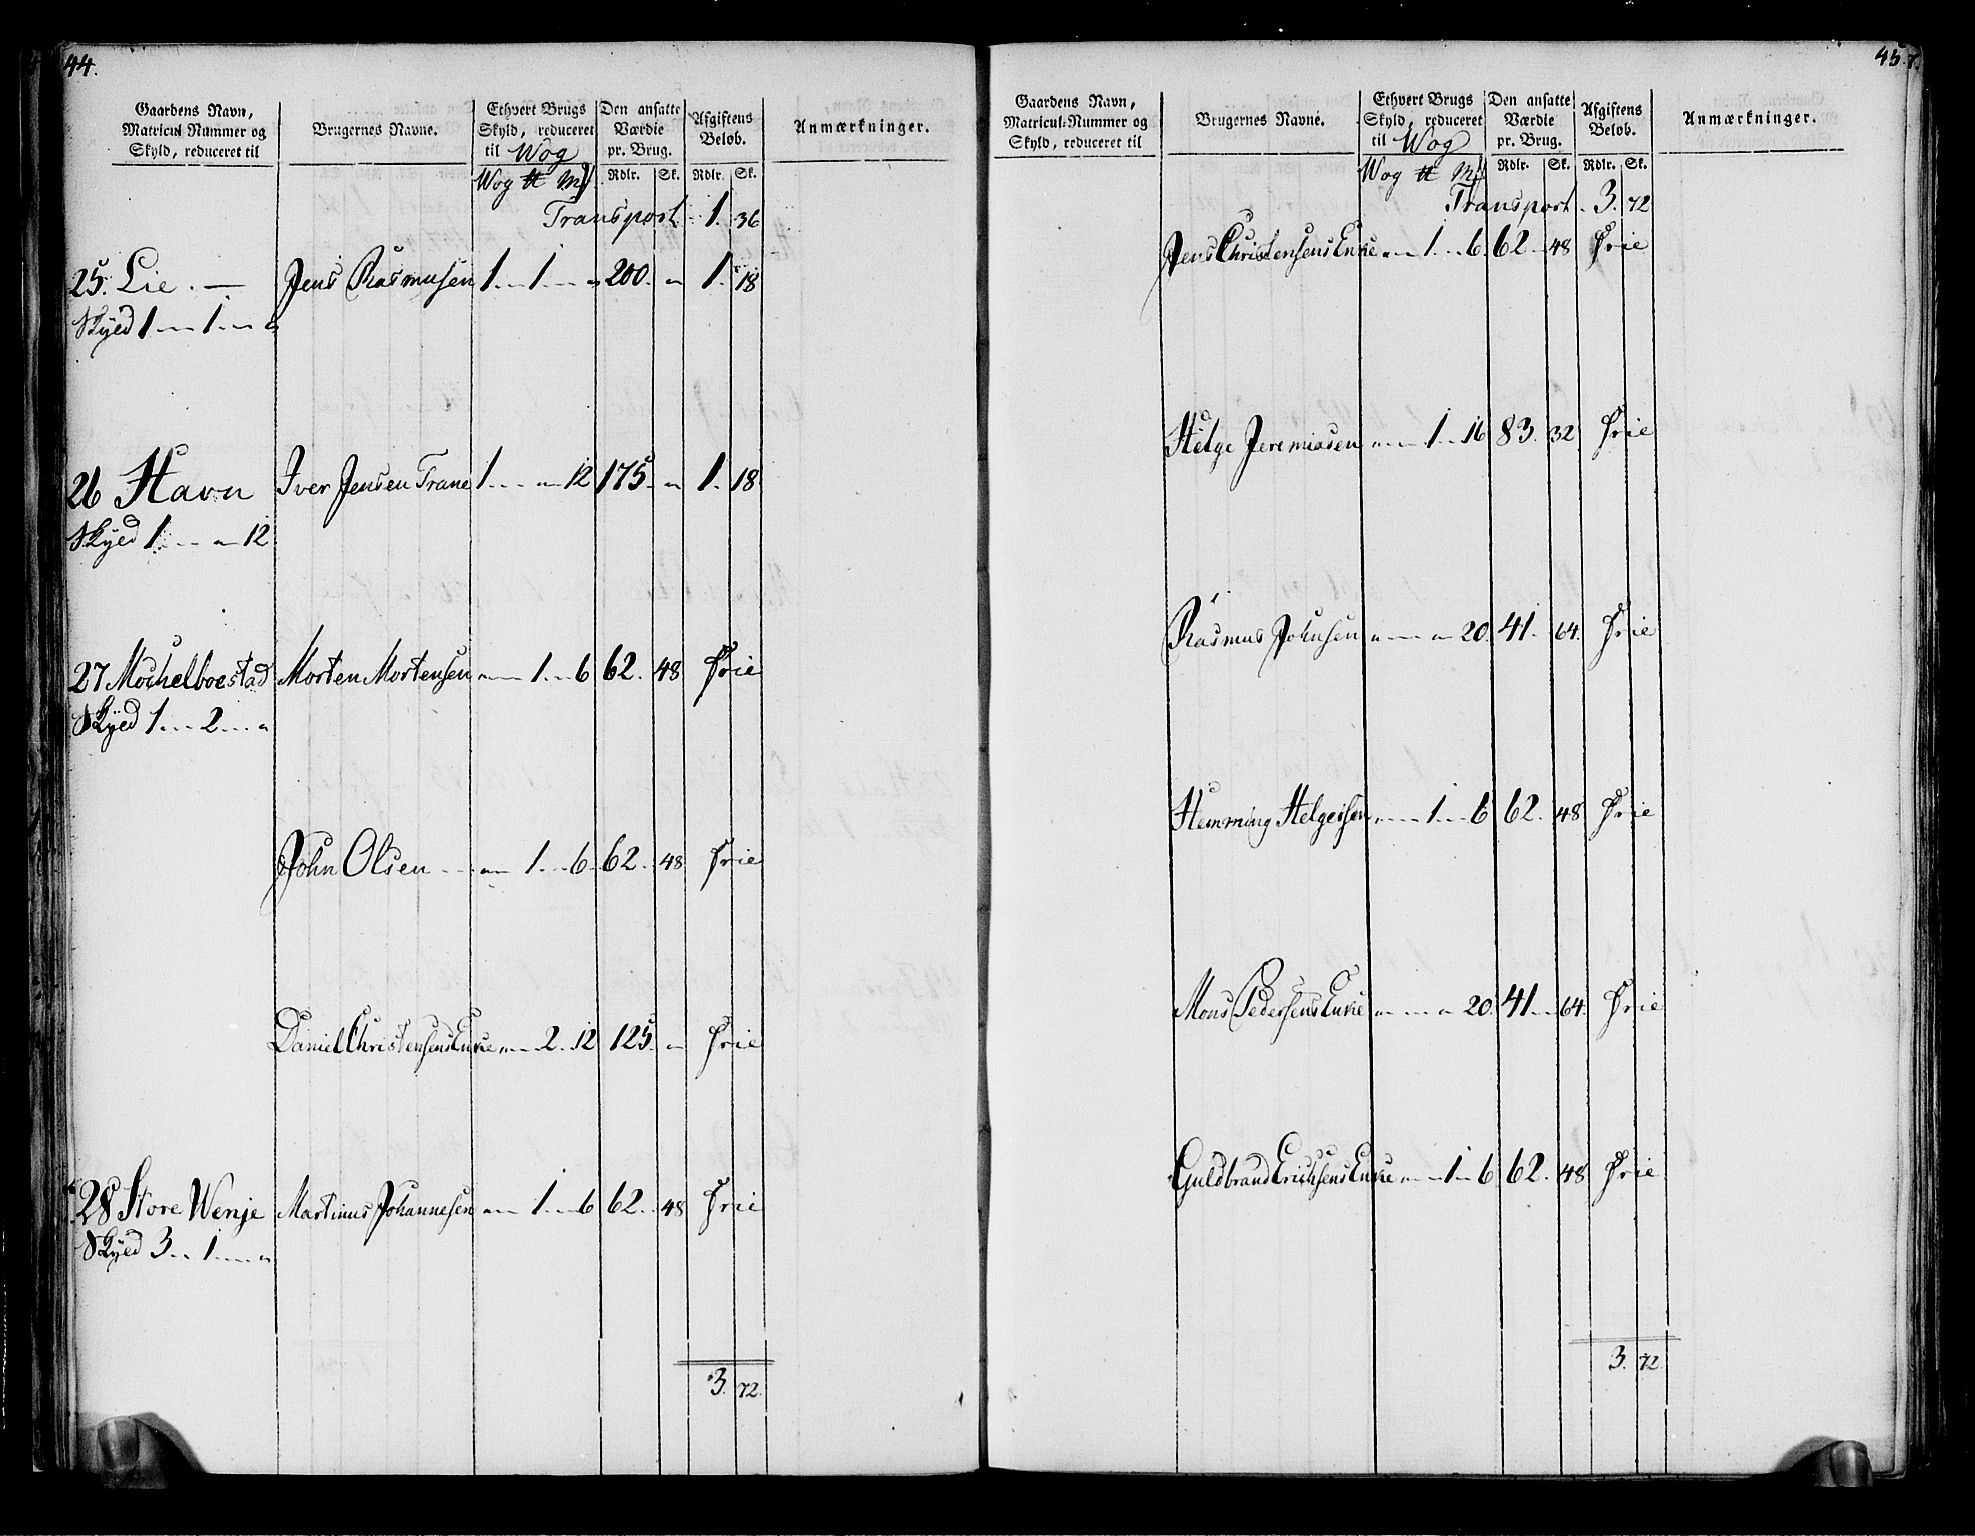 44.
Gaardens Navn, Matricul Nummer og Skyld, reduceret til | Brugernes Navne. | Ethvert Brugs Skyld, reduceret til Wog | Den ansatte Værdie pr. Brug. | Afgiftens Beløb. | Anmærkninger.
Wog ℔ Mk | Rdlr. | Sk. | Rdlr. | Sk.
Transport 1. 36
25. Lie. — Jens Rasmusen 1 . — 1 . — „ 200. „ 1. 18
Skyld 1 . — 1 . — „
26 Havn Iver Jensen Trane 1 . — „ — 12 175. „ 1. 18
Skyld 1 . — „ — 12
27 Mochelboestad Morten Mortensen „ — 1 . — 6 62. 48 Frie
Skyld 1 . — 2 . — „
John Olsen „ — 1 . — 6. 62. 48 Frie
Daniel Christensens Enke „ — 2 . 12 125. „ Frie
28 Store Wenje Martinus Johannesen „ — 1 . — 6 62. 48 Frie
Skyld 3 . — 1 . — „
3. 72.
45.
Gaardens Navn, Matricul-Nummer og Skyld, reduceret til | Brugernes Navne. | Ethvert Brugs Skyld, reduceret til Wog | Den ansatte Værdie pr. Brug. | Afgiftens Beløb. | Anmærkninger.
Wog ℔ Mk | Rdlr. | Sk. | Rdlr. | Sk.
Transport . 3. 72
Jens Christensens Enke „ — 1 . — 6. 62. 48 Frie
Helge Jeremiasen „ — 1 — 16 83. 32 Frie
Rasmus Johnsen „ — „ 20. 41. 64. Frie
Hemming Helgesen „ — 1 . — 6 62. 48 Frie
Mons Pedersens Enke „ — „ 20. 41. 64. Frie
Guldbrand Erichsens Enke „ — 1 — 6 62. 48 Frie
3. 72.